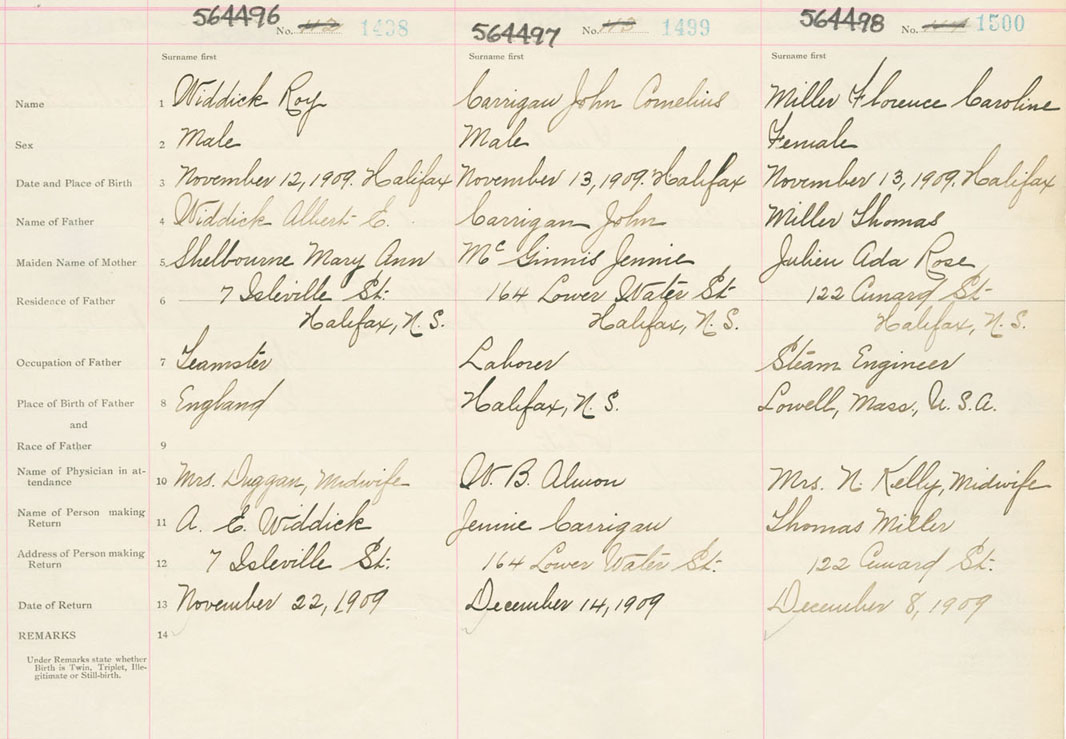 564496 No. 1498
564497 No. 1499
564498 No. 1500
Surname first Surname first Surname first
Name 1 Widdick Roy Carrigan John Cornelius Miller Florence Caroline
Sex 2 Male Male Female
Date and Place of Birth 3 November 12, 1909. Halifax November 13, 1909. Halifax November 13, 1909. Halifax
Name of Father 4 Widdick Albert E. Carrigan John Miller Thomas
Maiden Name of Mother 5 Shelbourne Mary Ann Mc Ginnis Jennie Julien Ada Rose
Residence of Father 6 7 Isleville St. 164 Lower Water St 122 Cunard St.
Halifax, N.S. Halifax, N.S. Halifax, N.S.
Occupation of Father 7 Teamster Laborer Steam Engineer
Place of Birth of Father 8 England Halifax, N.S. Lowell, Mass., U.S.A.
and
Race of Father 9
Name of Physician in at-
tendance 10 Mrs. Duggan, Midwife W. B. Almon Mrs. N. Kelly, Midwife
Name of Person making
Return 11 A. E. Widdick Jennie Carrigan Thomas Miller
Address of Person making
Return 12 7 Isleville St. 164 Lower Water St. 122 Cunard St.
Date of Return 13 November 22, 1909 December 14, 1909 December 8, 1909
REMARKS 14
Under Remarks state whether
Birth is Twin, Triplet, Ille-
gitimate or Still-birth.